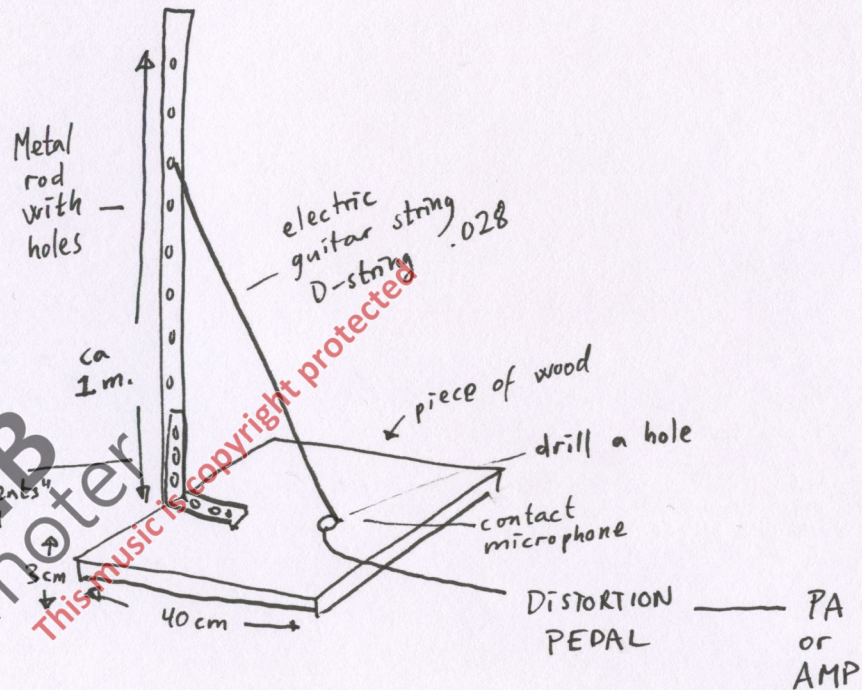 Metal
rod
with
holes
electric
guitar string
D-string .028
ca
1 m.
piece of wood
drill a hole
contact
microphone
3cm
40 cm
DISTORTION
PEDAL
PA
or
AMP
This music is copyright protected